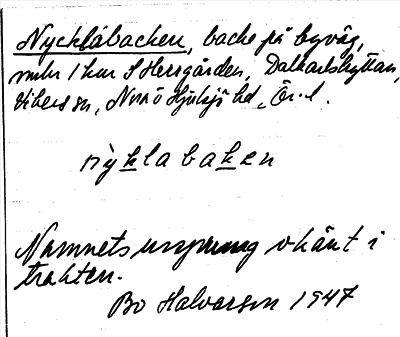 Nycklabacken, backe på byväg,
mln 1 km S Herrgården, Dalkarlshyttan,
Vikers sn, Nora o Hjulsjö hd, Ör. l.
nỳklabaken
Namnets ursprung okänt i
trakten.
Bo Halvarson 1947